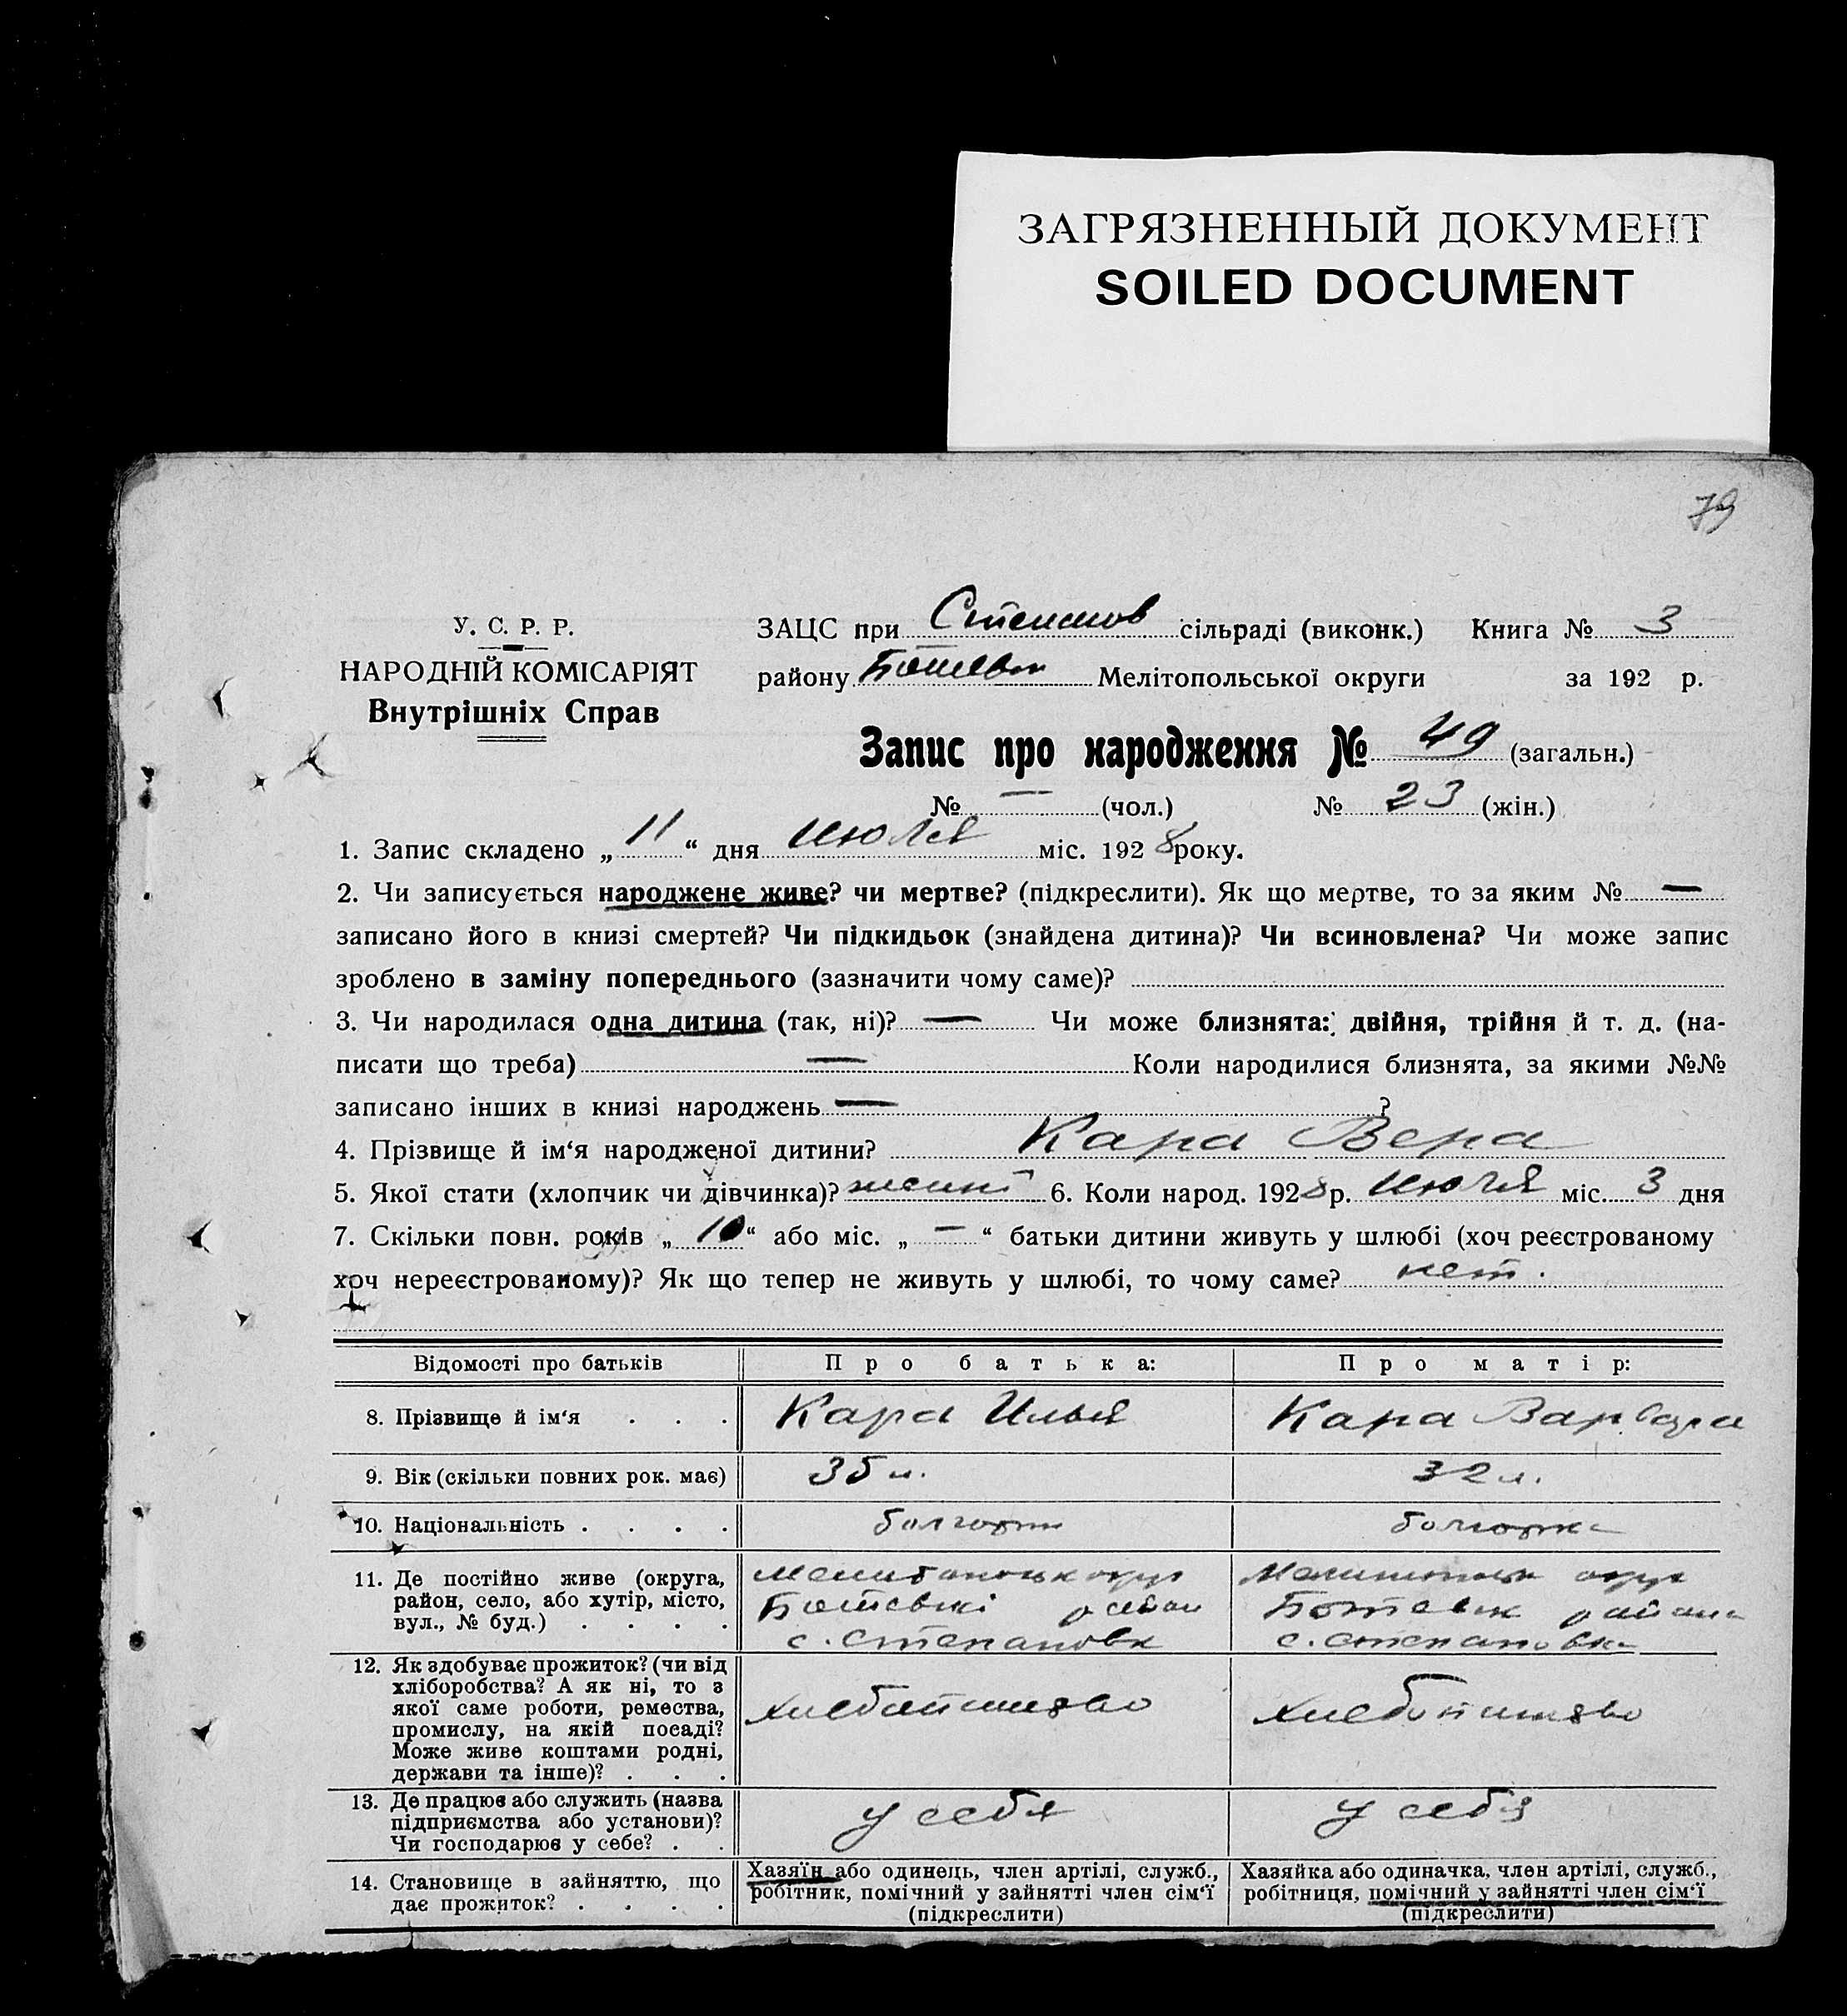 ЗАГРЯЗНЕННЫЙ ДОКУМЕНТ
SOILED DOCUMENT
79
У. С. Р. Р.
НАРОДНІЙ КОМІСАРІЯТ
Внутрішніх Справ
ЗАЦС при Степанов сільраді (виконк.) Книга № 3
району Ботевск Мелітопольської округи за 192 р.
Запис про народження № 49 (загальн.)
№ — (чол.) № 23 (жін.)
1. Запис складено „ 11 “ дня июля міс. 1928 року.
2. Чи записується народжене живе? чи мертве? (підкреслити). Як що мертве, то за яким № —
записано його в книзі смертей? Чи підкидьок (знайдена дитина)? Чи всиновлена? Чи може запис
зроблено в заміну попереднього (зазначити чому саме)?
3. Чи народилася одна дитина (так, ні)? — Чи може близнята: двійня, трійня й т. д. (на-
писати що треба) — Коли народилися близнята, за якими №№
записано інших в книзі народжень — ?
4. Прізвище й ім‘я народженої дитини? Кара Вера
5. Якої стати (хлопчик чи дівчинка)? 6. Коли народ. 1928 р. июля міс. 3 дня
7. Скільки повн. років „ 10 “ або міс. „ — “ батьки дитини живуть у шлюбі (хоч реєстрованому
хоч нереєстрованому)? Як що тепер не живуть у шлюбі, то чому саме? нет.
Відомості про батьків Про батька: Про матір:
8. Прізвище й ім‘я . . . Кара Илья Кара Варвара
9. Вік (скільки повних рок. має) 35 л. 32 л.
10. Національність . . . . болгарин болгарка
11. Де постійно живе (округа,
район, село, або хутір, місто,
вул., № буд.) . . . .
с. Степановк
с. Степановка
12. Як здобуває прожиток? (чи від
хліборобства? А як ні, то з
якої саме роботи, ремества,
промислу, на якій посаді?
Може живе коштами родні,
держави та інше)? . . .
хлебопашество хлебопашество
13. Де працює або служить (назва
підприємства або установи)?
Чи господарює у себе? . .
у себя у себя
14. Становище в зайняттю, що
дає прожиток? . . . .
Хазяїн або одинець, член артілі, служб.,
робітник, помічний у зайнятті член сім‘ї
(підкреслити)
Хазяйка або одиначка, член артілі, служб.,
робітниця, помічний у зайнятті член сім‘ї
(підкреслити)